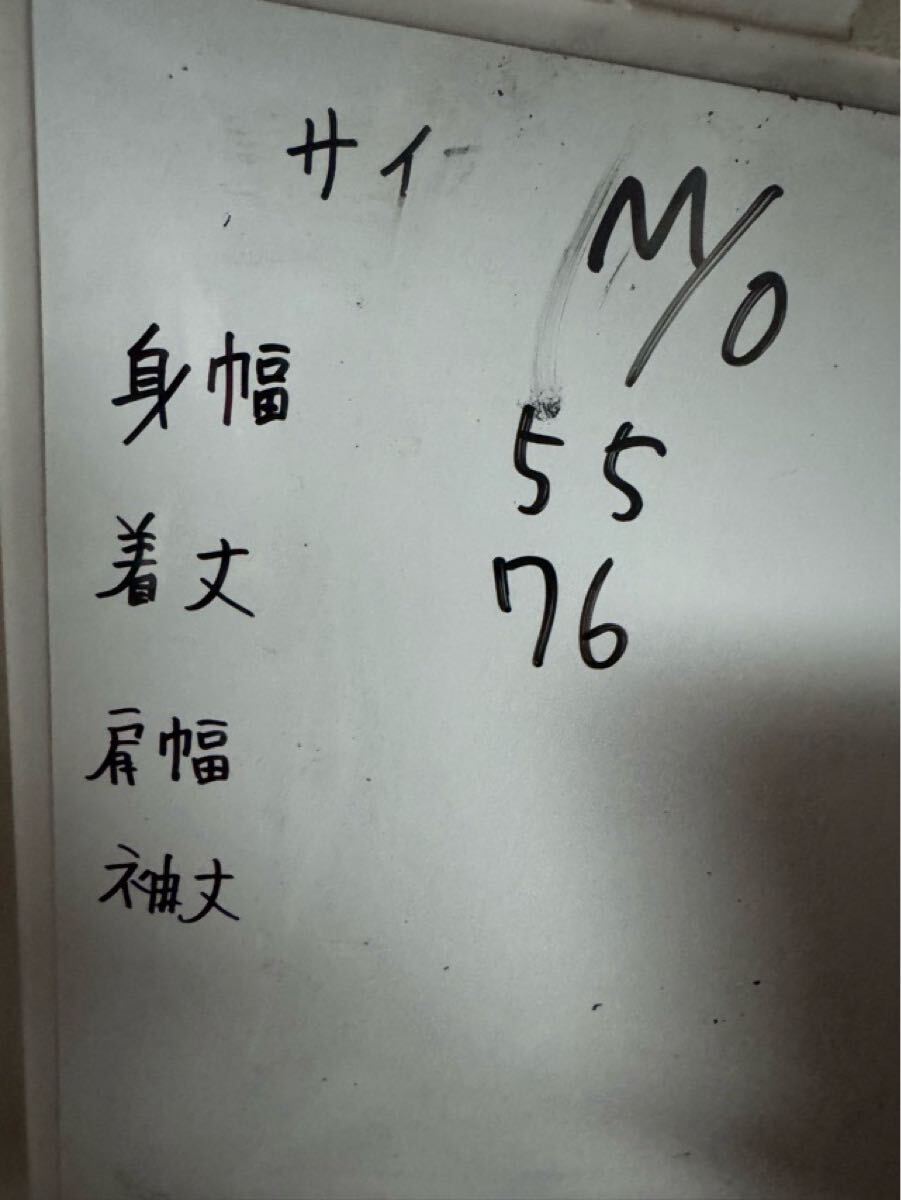 サイ
M/0
身幅 55
着丈 76
肩幅
袖丈